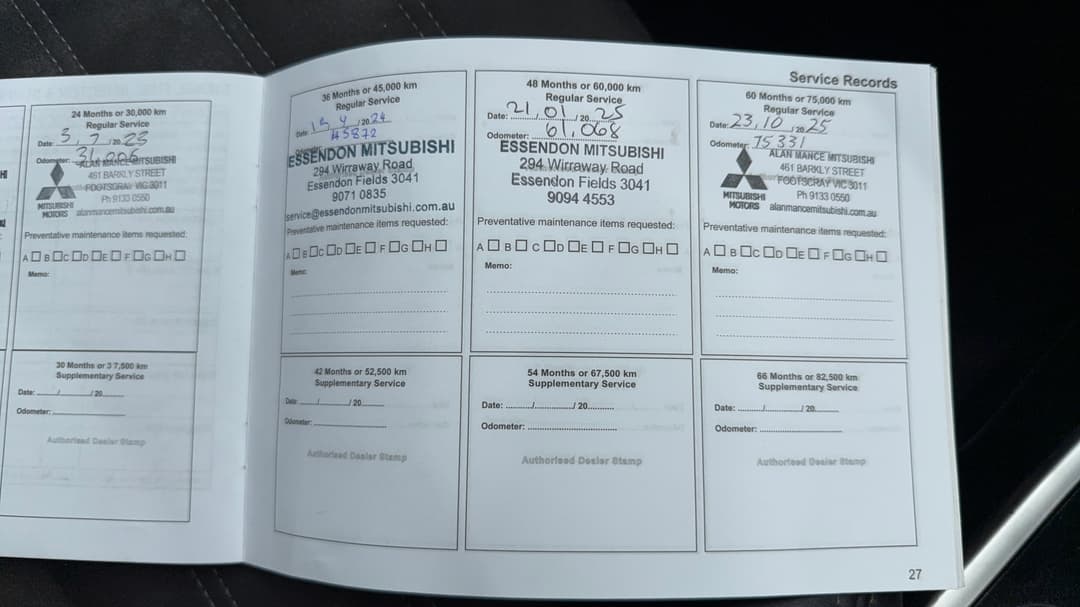 Service Records
24 Months or 30,000 km
Regular Service
Date: 3, 7 / 20 23
Odometer: 31,206
ALAN MANCE MITSUBISHI
461 BARKLY STREET
FOOTSCRAY VIC 3011
Ph 9133 0550
MITSUBISHI
MOTORS
alanmancemitsubishi.com.au
Preventative maintenance items requested:
A☐ B☐ C☐ D☐ E☐ F☐ G☐ H☐
Memo:
30 Months or 37,500 km
Supplementary Service
Date: / / 20
Odometer:
Authorised Dealer Stamp
36 Months or 45,000 km
Regular Service
Date: 4 / 20 24
Odometer: 45872
ESSENDON MITSUBISHI
294 Wirraway Road
Essendon Fields 3041
9071 0835
service@essendonmitsubishi.com.au
Preventative maintenance items requested:
A☐ B☐ C☐ D☐ E☐ F☐ G☐ H☐
Memo:
42 Months or 52,500 km
Supplementary Service
Date: / / 20
Odometer:
Authorised Dealer Stamp
48 Months or 60,000 km
Regular Service
Date: 21, 01 / 20 25
Odometer: 61,068
ESSENDON MITSUBISHI
294 Wirraway Road
Essendon Fields 3041
9094 4553
Preventative maintenance items requested:
A☐ B☐ C☐ D☐ E☐ F☐ G☐ H☐
Memo:
54 Months or 67,500 km
Supplementary Service
Date: / / 20
Odometer:
Authorised Dealer Stamp
60 Months or 75,000 km
Regular Service
Date: 23, 10 / 20 25
Odometer: 75331
ALAN MANCE MITSUBISHI
461 BARKLY STREET
FOOTSCRAY VIC 3011
Ph 9133 0550
MITSUBISHI
MOTORS
alanmancemitsubishi.com.au
Preventative maintenance items requested:
A☐ B☐ C☐ D☐ E☐ F☐ G☐ H☐
Memo:
66 Months or 82,500 km
Supplementary Service
Date: / / 20
Odometer:
Authorised Dealer Stamp
27